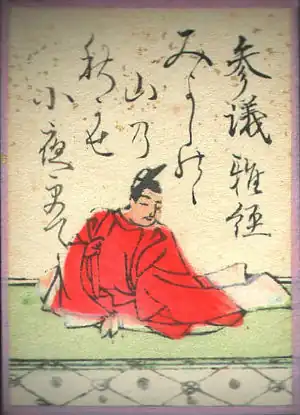 参議雅経
みよし野の
山乃
秋かせ
小夜更て